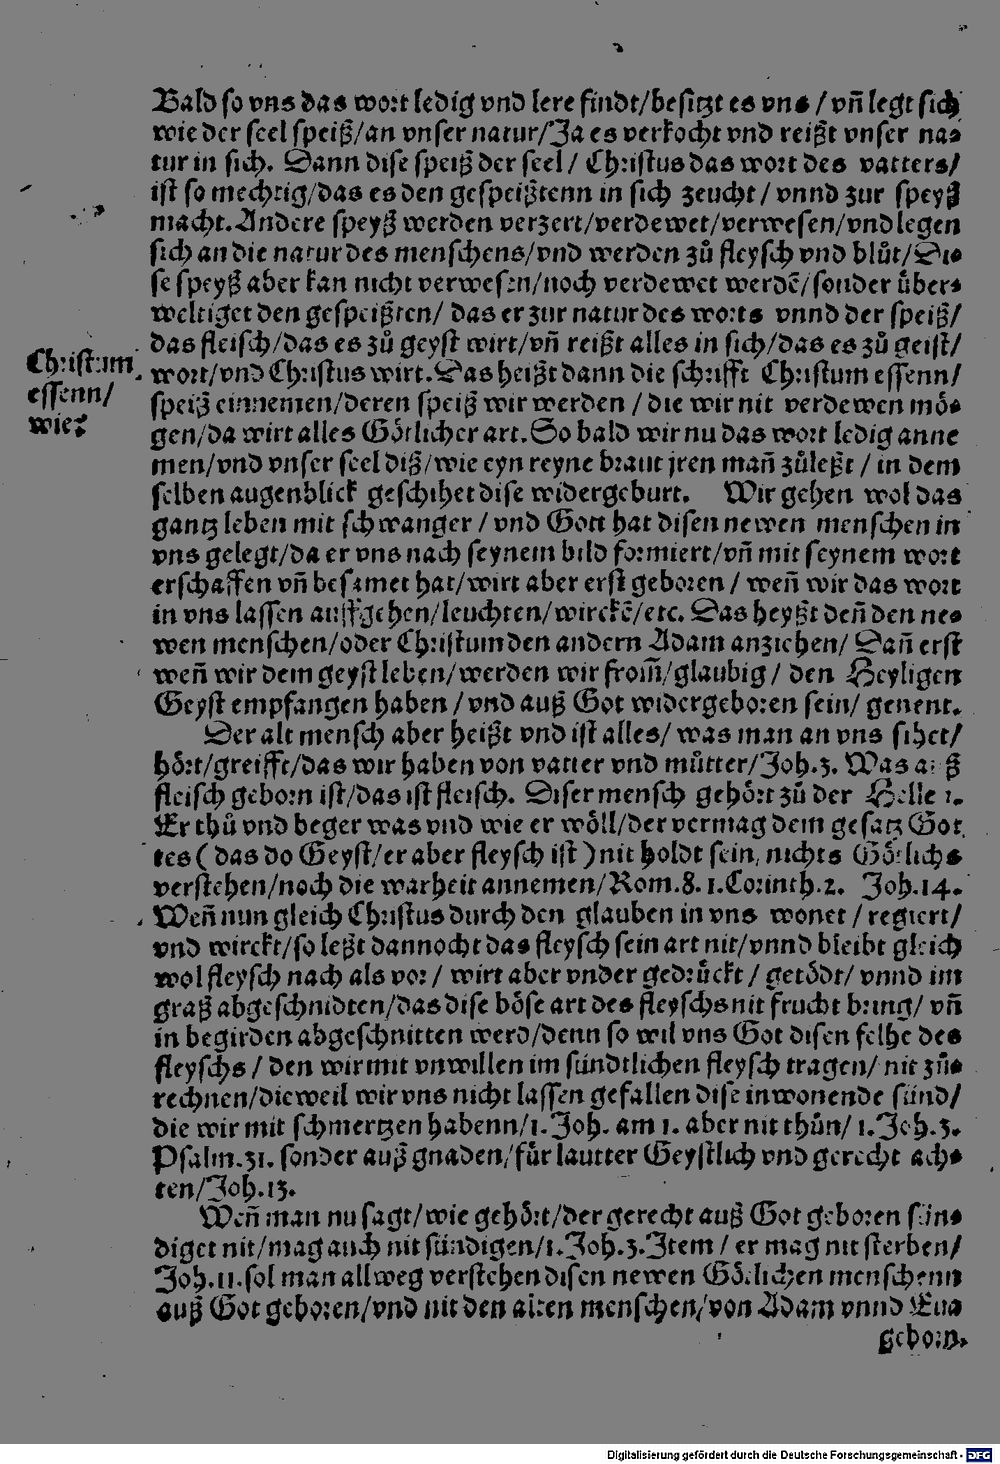 Bald so vns das wort ledig vnd lere findt/besitzt es vns / vn̄ legt sich
wie der seel speiß/an vnser natur/Ja es verkocht vnd reißt vnser na⸗
tur in sich. Dann dise speiß der seel / Christus das wort des vatters/
ist so mechtig/das es den gespeißtenn in sich zeucht / vnnd zur speyß
macht. Andere speyß werden verzert/verdewet/verwesen/vnd legen
sich an die natur des menschens/vnd werden zů fleysch vnd blůt/Di⸗
se speyß aber kan nicht verwesen/noch verdewet werdē/sonder über⸗
weltiget den gespeißten/ das er zur natur des worts vnnd der speiß/
das fleisch/das es zů geyst wirt/vn̄ reißt alles in sich/das es zů geist/
Christum
essenn/
wie?
wort/vnd Christus wirt. Das heißt dann die schrifft Christum essenn/
speiß einnemen/deren speiß wir werden / die wir nit verdewen mö⸗
gen/da wirt alles Götlicher art. So bald wir nu das wort ledig anne
men/vnd vnser seel diß/wie eyn reyne braut jren man̄ zůleßt / in dem
selben augenblick geschihet dise widergeburt. Wir gehen wol das
gantz leben mit schwanger / vnd Gott hat disen newen menschen in
vns gelegt/da er vns nach seynem bild formiert/vn̄ mit seynem wort
erschaffen vn̄ besamet hat/wirt aber erst geboren / wen̄ wir das wort
in vns lassen auffgehen/leuchten/wirckē/etc. Das heyßt den̄ den ne⸗
wen menschen/oder Christum den andern Adam anziehen/ Dan̄ erst
wen̄ wir dem geyst leben/werden wir from̄/glaubig / den Heyligen
Geyst empfangen haben / vnd auß Got widergeboren sein/ genent.
Der alt mensch aber heißt vnd ist alles/ was man an vns sihet/
hört/greifft/das wir haben von vatter vnd můtter/Joh.3. Was auß
fleisch geborn ist/das ist fleisch. Diser mensch gehört zů der Helle 1.
Er thů vnd beger was vnd wie er wöll/der vermag dem gesatz Got
tes ( das do Geyst/er aber fleysch ist ) nit holdt sein, nichts Götlichs
verstehen/noch die warheit annemen/Rom.8. 1.Corinth.2. Joh.14.
Wen̄ nun gleich Christus durch den glauben in vns wonet / regiert/
vnd wirckt/so leßt dannocht das fleysch sein art nit/vnnd bleibt gleich
wol fleysch nach als vor/ wirt aber vnder gedrückt / getödt/ vnnd im
graß abgeschnidten/das dise böse art des fleyschs nit frucht bring/ vn̄
in begirden abgeschnitten werd/denn so wil vns Got disen felhe des
fleyschs / den wir mit vnwillen im sündtlichen fleysch tragen/ nit zů⸗
rechnen/dieweil wir vns nicht lassen gefallen dise inwonende sünd/
die wir mit schmertzen habenn/1. Joh. am 1. aber nit thůn/ 1. Joh.3.
Psalm.31. sonder auß gnaden/für lautter Geystlich vnd gerecht ach⸗
ten/Joh.13.
Wen̄ man nu sagt/wie gehört/der gerecht auß Got geboren sün⸗
diget nit/mag auch nit sündigen/1. Joh.3. Item / er mag nit sterben/
Joh.11. sol man allweg verstehen disen newen Götlichen menschenn
auß Got geboren/vnd nit den alten menschen/von Adam vnnd Eua
geborn.
Digitalisierung gefördert durch die Deutsche Forschungsgemeinschaft - DFG